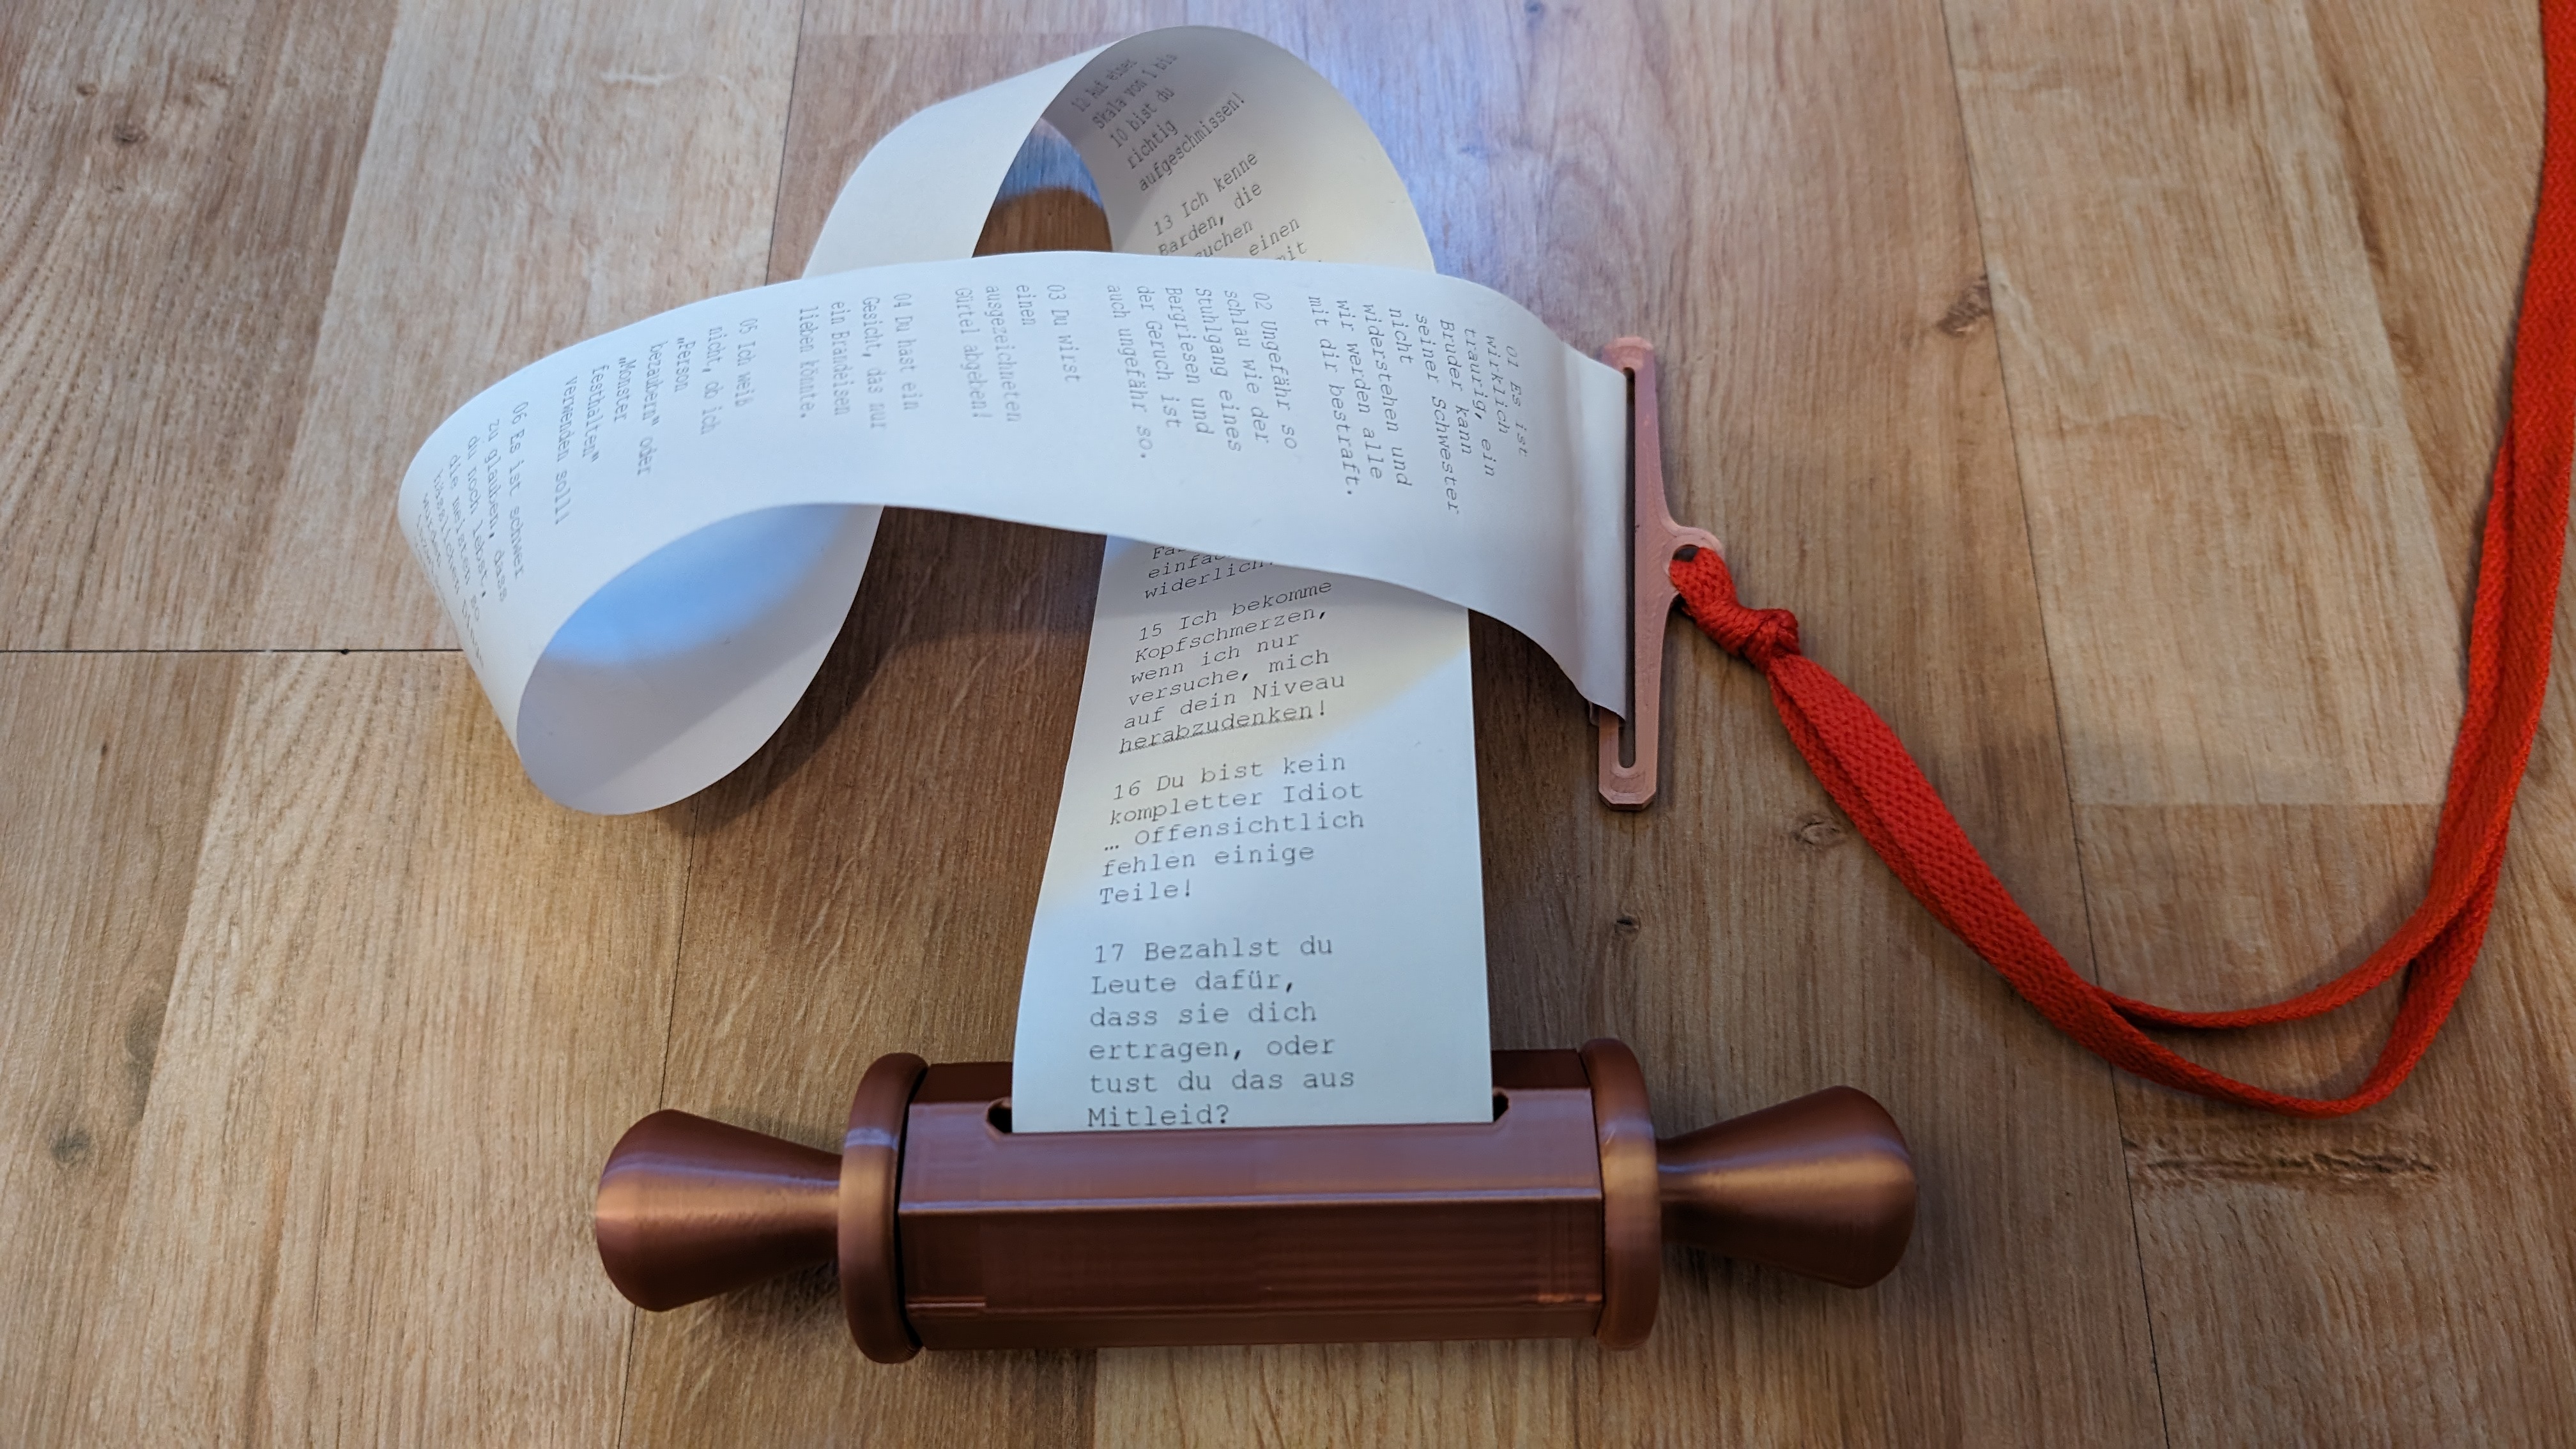 01 Es ist
wirklich
traurig, ein
Bruder kann
seiner Schwester
nicht
widerstehen und
wir werden alle
mit dir bestraft.
02 Ungefähr so
schlau wie der
Stuhlgang eines
Bergriesen und
der Geruch ist
auch ungefähr so.
03 Du wirst
einen
ausgezeichneten
Gürtel abgeben!
04 Du hast ein
Gesicht, das nur
ein Brandeisen
lieben könnte.
05 Ich weiß
nicht, ob ich
„Person
bezaubern“ oder
„Monster
festhalten“
verwenden soll!
06 Es ist schwer
zu glauben, dass
du noch lebst, so
die meisten
Skala von 1 bis
10 bist du
richtig
aufgeschmissen!
13 Ich kenne
Barden, die
einen
mit
einfach
widerlich
15 Ich bekomme
Kopfschmerzen,
wenn ich nur
versuche, mich
auf dein Niveau
herabzudenken!
16 Du bist kein
kompletter Idiot
… Offensichtlich
fehlen einige
Teile!
17 Bezahlst du
Leute dafür,
dass sie dich
ertragen, oder
tust du das aus
Mitleid?